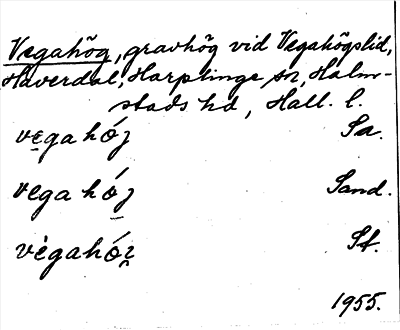 Vegahög, gravhög vid Vegahögslid,
Haverdal, Harplinge sn, Halm-
stads hd, Hall. l.
vegahój Sa.
vegahój Sand.
vègahóʒ St.
1955.